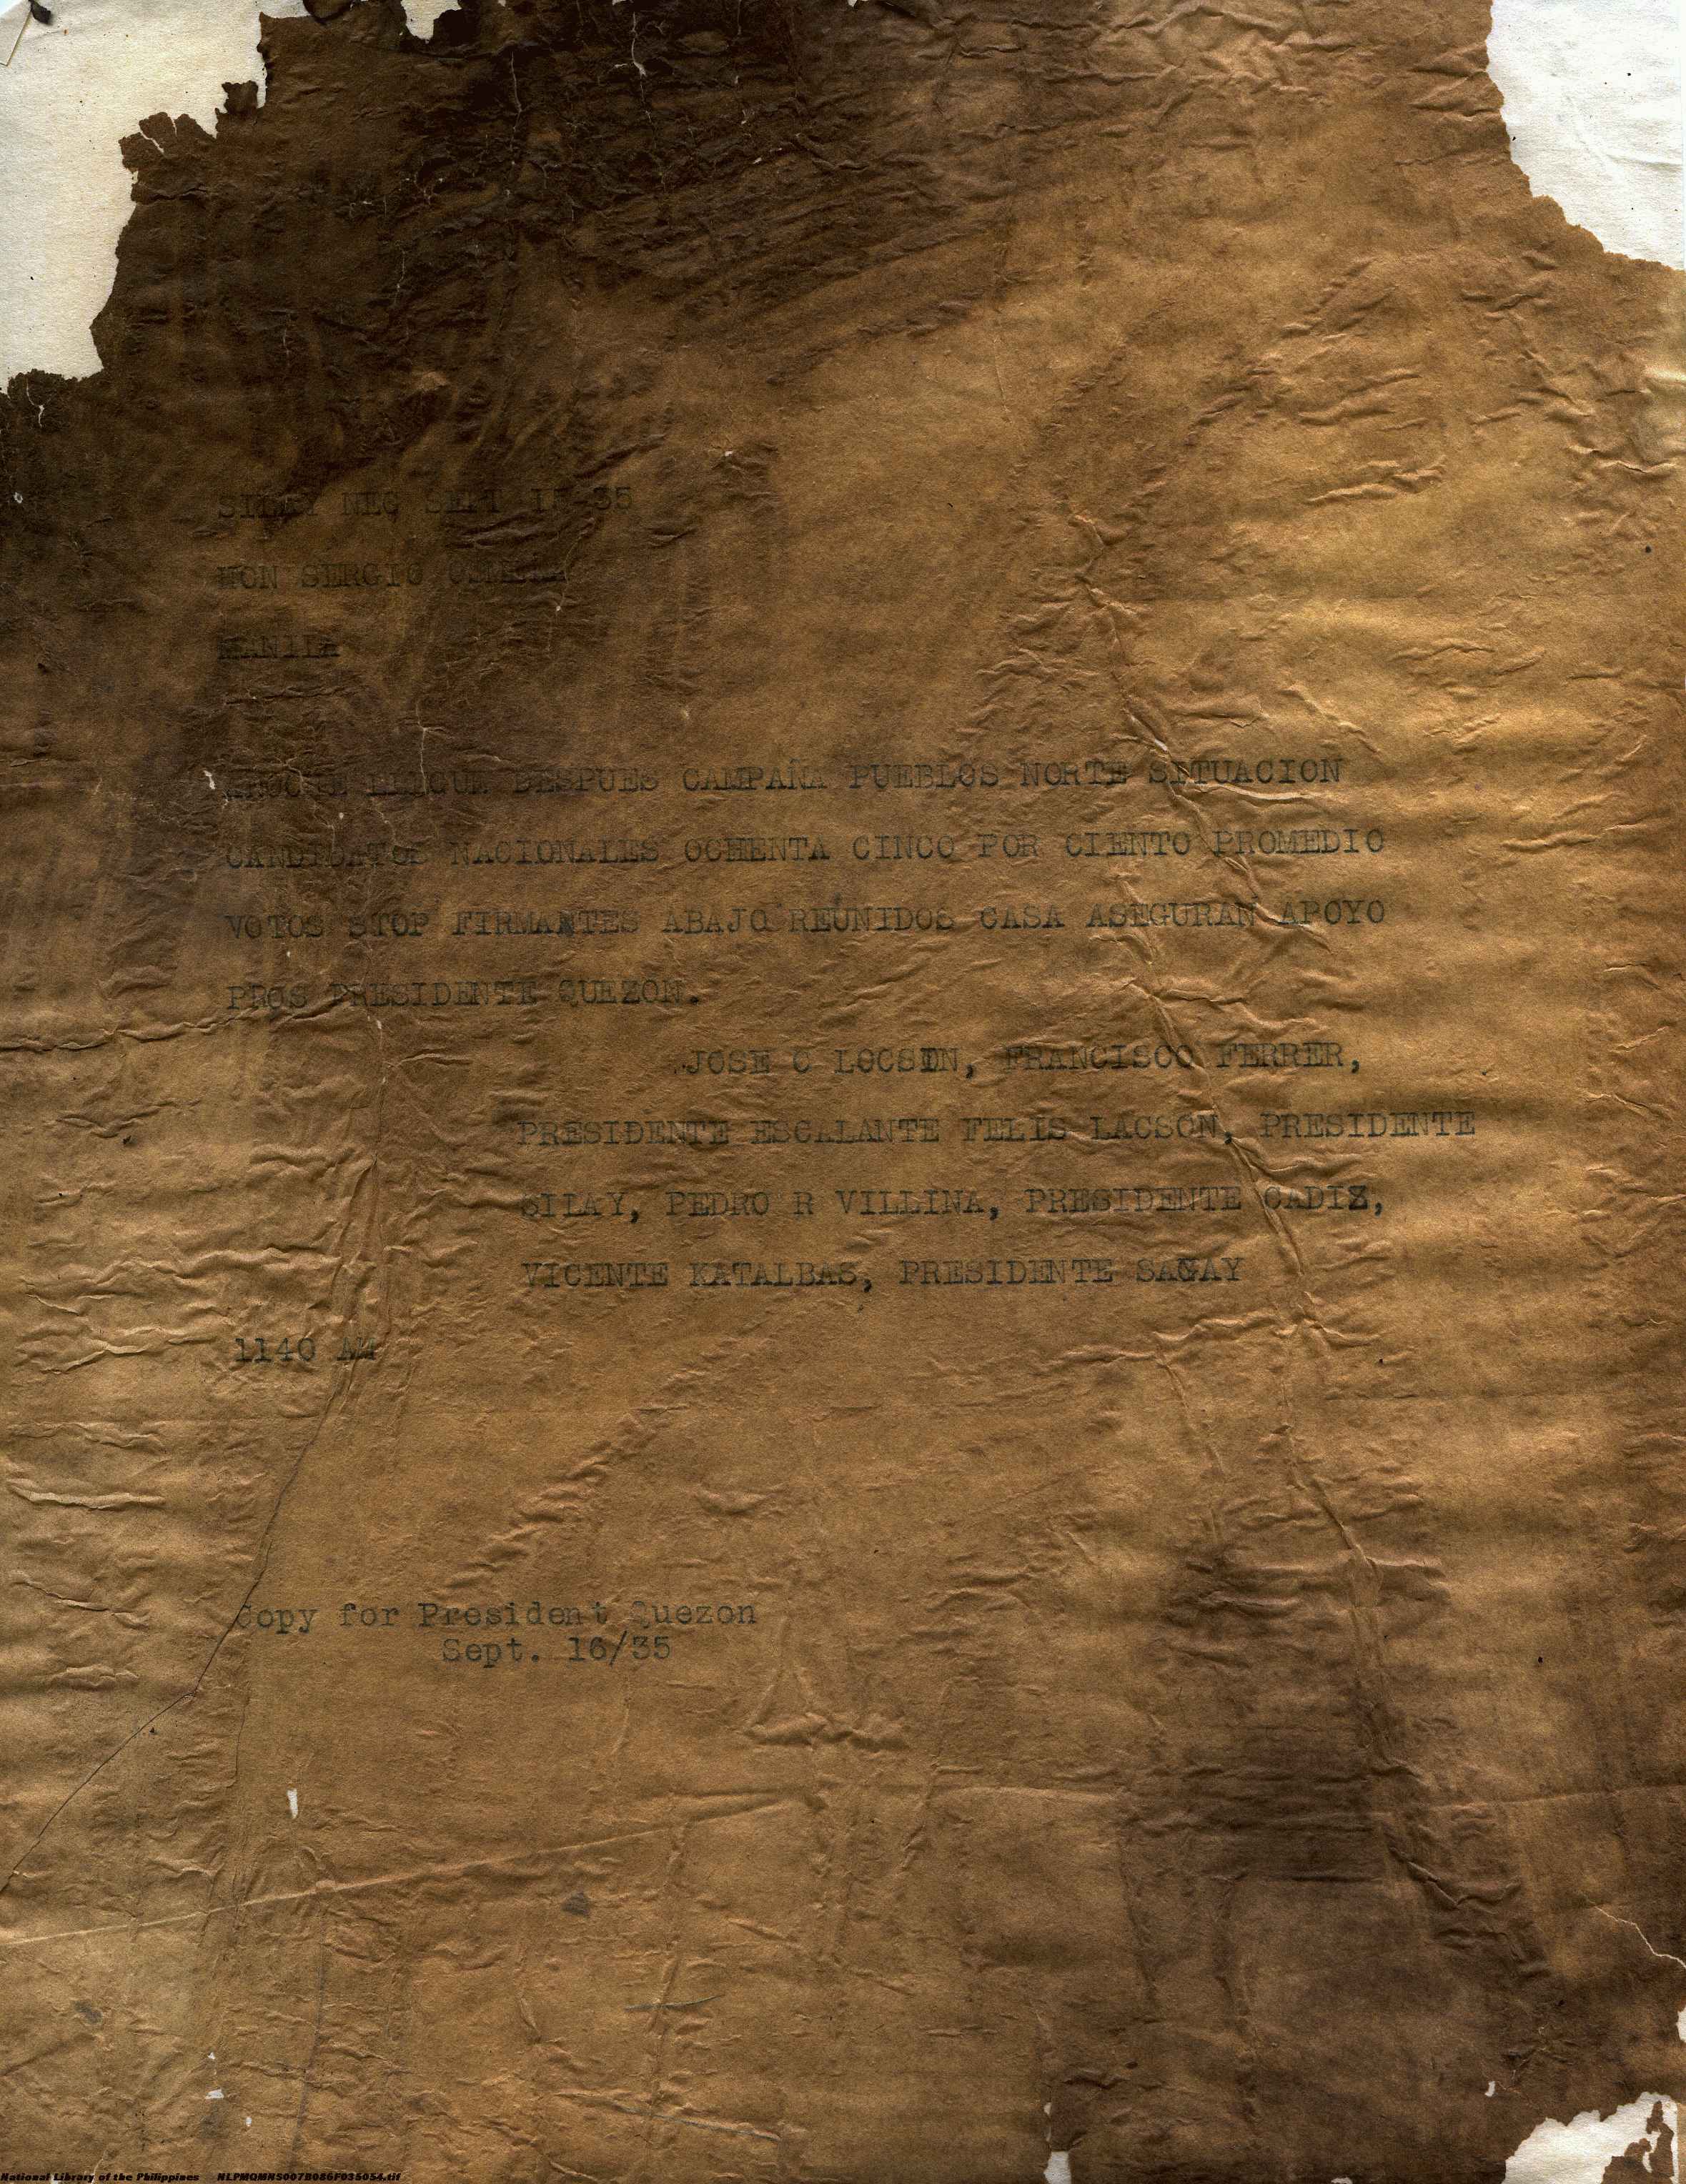 SILAY NEG SEPT 35
HON SERGIO OSMEÑA
MANILA
ANOCHE LLEGUE DESPUES CAMPAÑA PUEBLOS NORTE SITUACION
CANDIDATOS NACIONALES OCHENTA CINCO POR CIENTO PROMEDIO
VOTOS STOP FIRMANTES ABAJO REUNIDOS CASA ASEGURAN APOYO
PROS PRESIDENTE QUEZON.
JOSE C LOCSIN, FRANCISCO FERRER,
PRESIDENTE ESCALANTE FELIS LACSON, PRESIDENTE
SILAY, PEDRO R VILLINA, PRESIDENTE CADIZ,
VICENTE KATALBAS, PRESIDENTE SAGAY
1140 AM
Copy for President Quezon
Sept. 16/35
National Library of the Philippines NLPMQMNS007B086F035054.tif